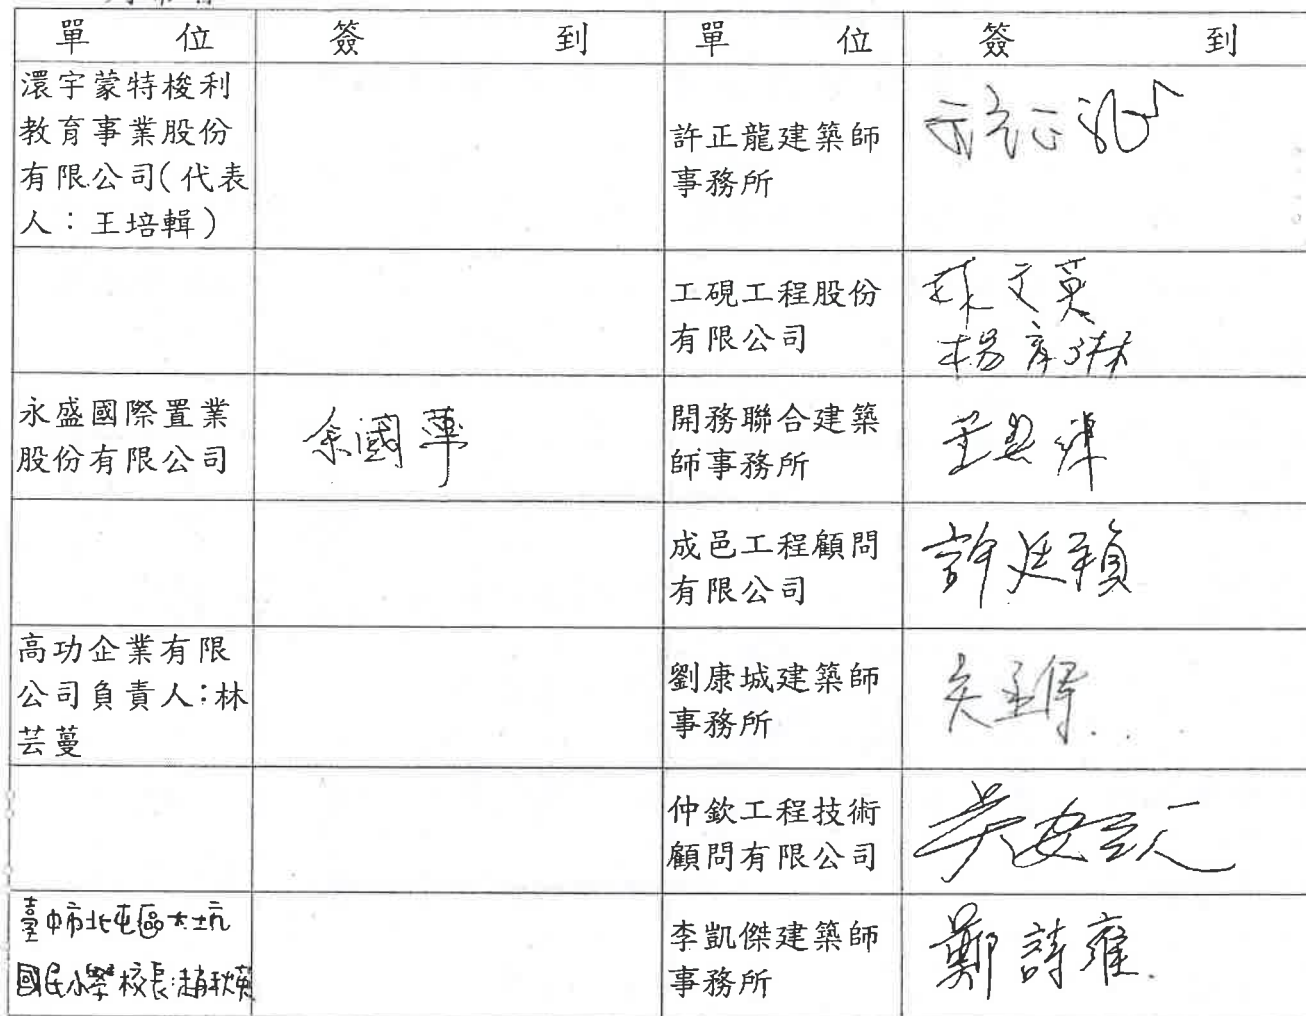 單 位 簽 到 單 位 簽 到
濃宇蒙特梭利
教育事業股份
有限公司(代表
人：王培輯)
許正龍建築師
事務所
許正龍
工硯工程股份
有限公司
林文英
永盛國際置業
股份有限公司
余國華
開務聯合建築
師事務所
成邑工程顧問
有限公司
許廷穎
高功企業有限
公司負責人:林
芸蔓
劉康城建築師
事務所
仲欽工程技術
顧問有限公司
臺中市北屯區大坑
國民小學校長:趙秋英
李凱傑建築師
事務所
鄭詩雍